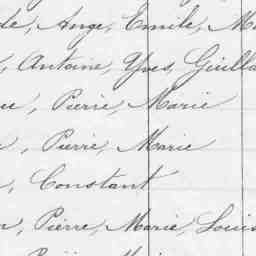 de, Ange, Emile, M
, Antoine, Yves, Guilla
, Pierre, Marie
, Pierre, Marie
, Constant
, Pierre, Marie, Louis